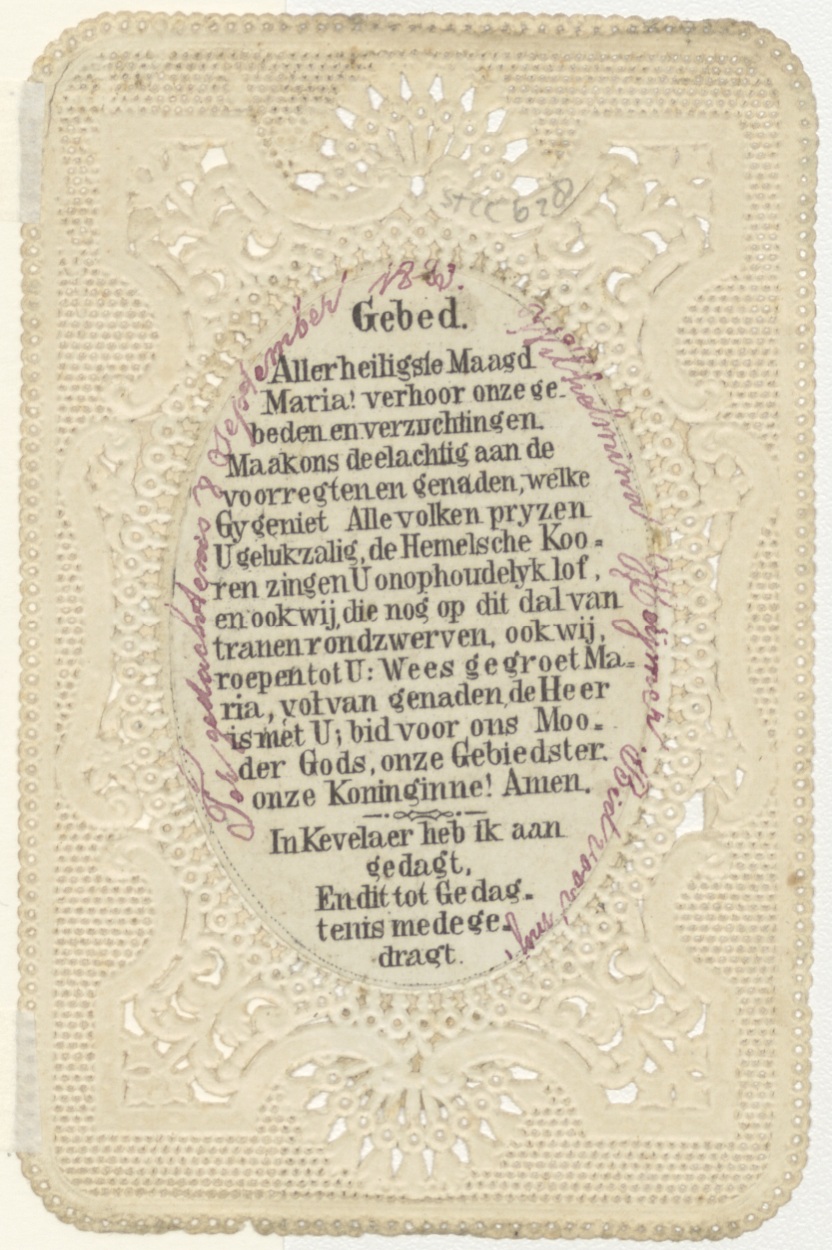 Gebed.
Allerheiligste Maagd
Maria! verhoor onze ge-
beden en verzuchtingen.
Maak ons deelachtig aan de
voorregten en genaden, welke
Gy geniet Alle volken pryzen
U gelukzalig, de Hemelsche Koo-
ren zingen U onophoudelyk lof,
en ook wij, die nog op dit dal van
tranen rondzwerven, ook wij,
roepen tot U: Wees gegroet Ma-
ria, vol van genaden, de Heer
is met U; bid voor ons Moo-
der Gods, onze Gebiedster.
onze Koninginne! Amen.
In Kevelaer heb ik aan
gedagt,
En dit tot Gedag-
tenis medege-
dragt.
Tot gedachtenis 8 September
Wilhelmina
Bid voor mij.